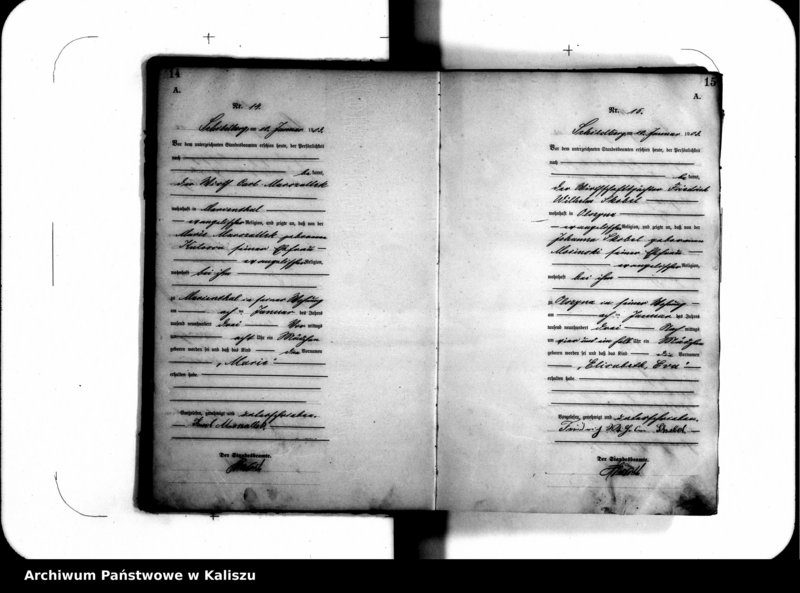 14
A.
Nr. 14.
Schildberg, am 12. Januar 1903.
Vor dem unterzeichneten Standesbeamten erschien heute, der Persönlichkeit
nach
be kannt,
der Wirth Carl
wohnhaft in Marienthal
evangelischer Religion, und zeigte an, daß von der
Marie geborenen
seiner Ehefrau
evangelischer Religion,
wohnhaft bei ihm
zu Marienthal in seiner Wohnung
am Januar des Jahres
tausend neunhundert drei Vor mittags
um acht Uhr ein Mädchen
geboren worden sei und daß das Kind den Vornamen
„Marie“
erhalten habe.
Vorgelesen, genehmigt und unterschrieben.
Der Standesbeamte.
15
A.
Nr. 15.
Schildberg, am 12. Januar 1903.
Vor dem unterzeichneten Standesbeamten erschien heute, der Persönlichkeit
nach
be kannt,
der Friedrich
Wilhelm Skobel
wohnhaft in Olszyna
evangelischer Religion, und zeigte an, daß von der
Johanna Skobel geborenen
seiner Ehefrau
evangelischer Religion,
wohnhaft bei ihm
zu Olszyna in seiner Wohnung
am Januar des Jahres
tausend neunhundert drei Nach mittags
um vier und ein halb Uhr ein Mädchen
geboren worden sei und daß das Kind die Vornamen
„Elisabeth, Eva“
erhalten habe.
Vorgelesen, genehmigt und unterschrieben.
Der Standesbeamte.
Archiwum Państwowe w Kaliszu